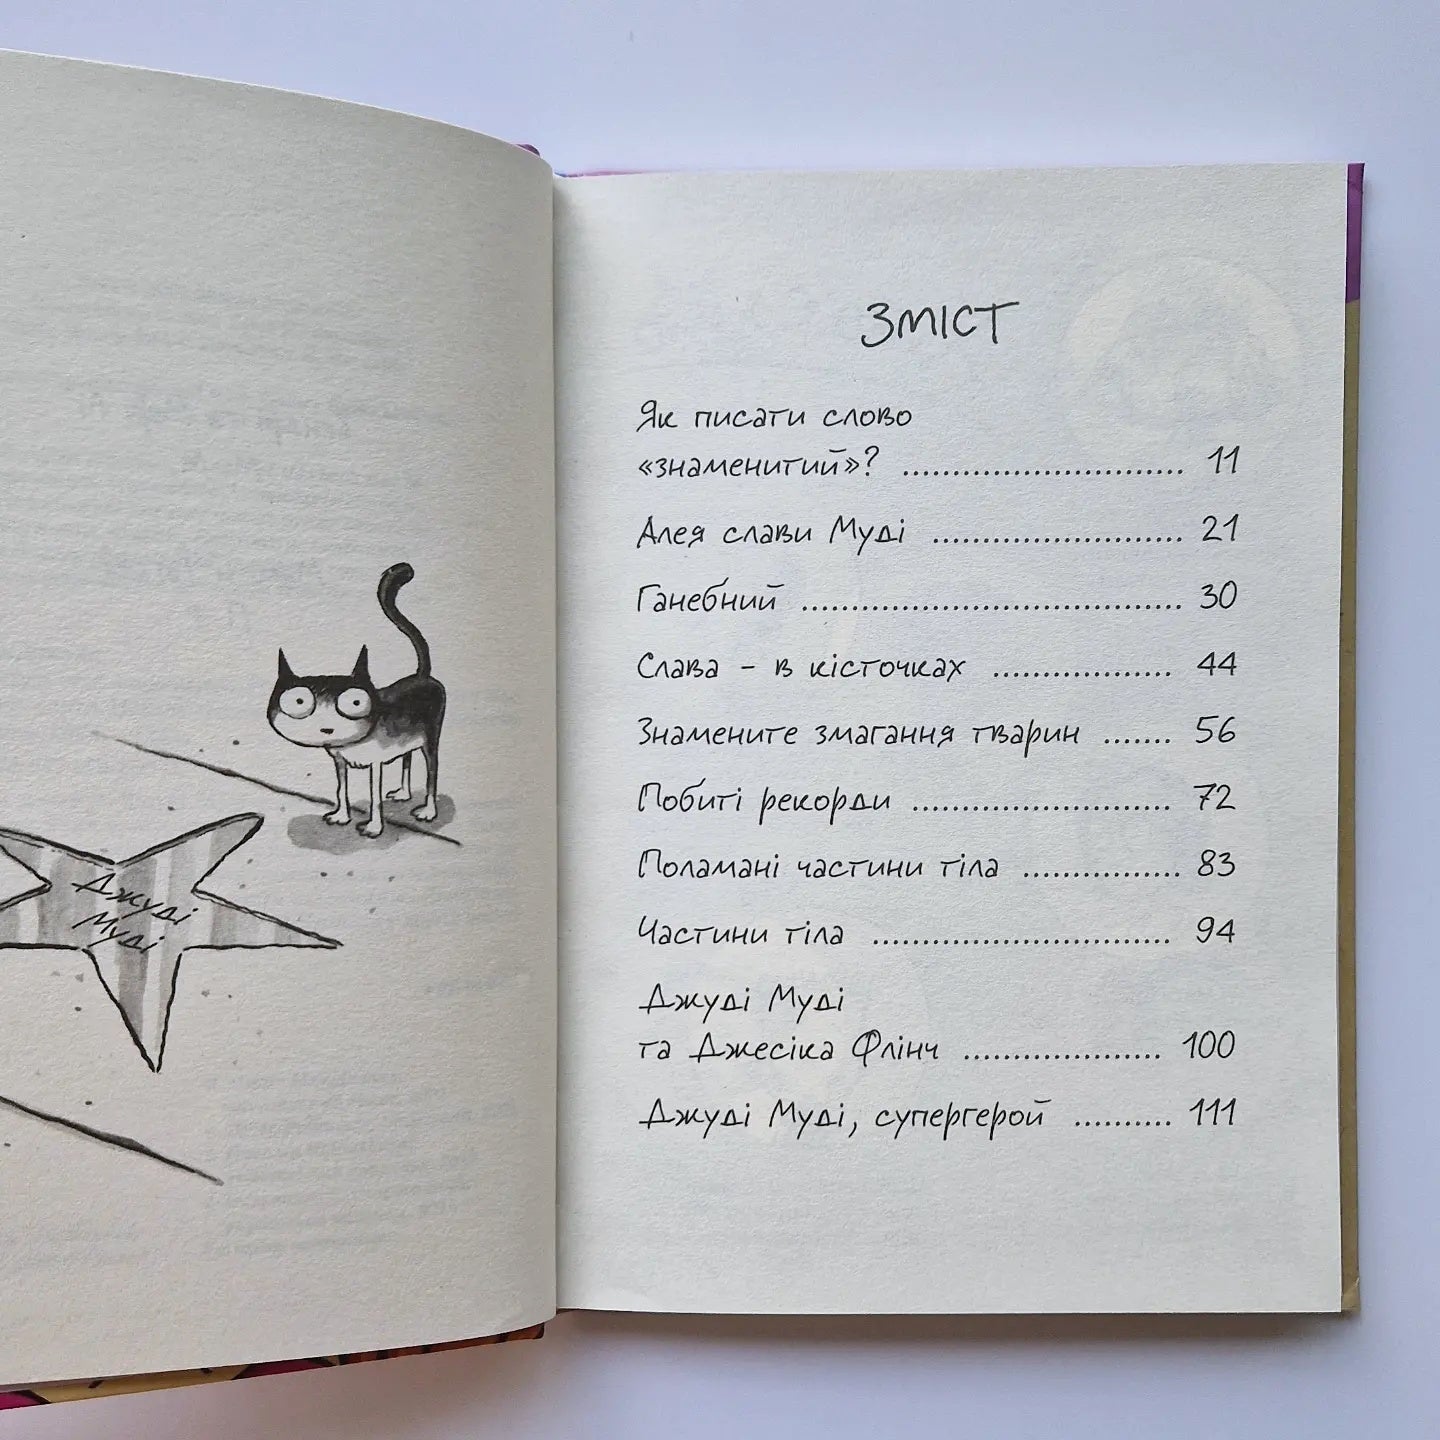 Джуді
Муді
ЗМІСТ
Як писати слово
«знаменитий»? ............................ 11
Алея слави Муді ......................... 21
Ганебний ...................................... 30
Слава – в кісточках .................. 44
Знамените змагання тварин ....... 56
Побиті рекорди .......................... 72
Поламані частини тіла ................ 83
Частини тіла .............................. 94
Джуді Муді
та Джесіка Флінч .................... 100
Джуді Муді, супергерой .......... 111